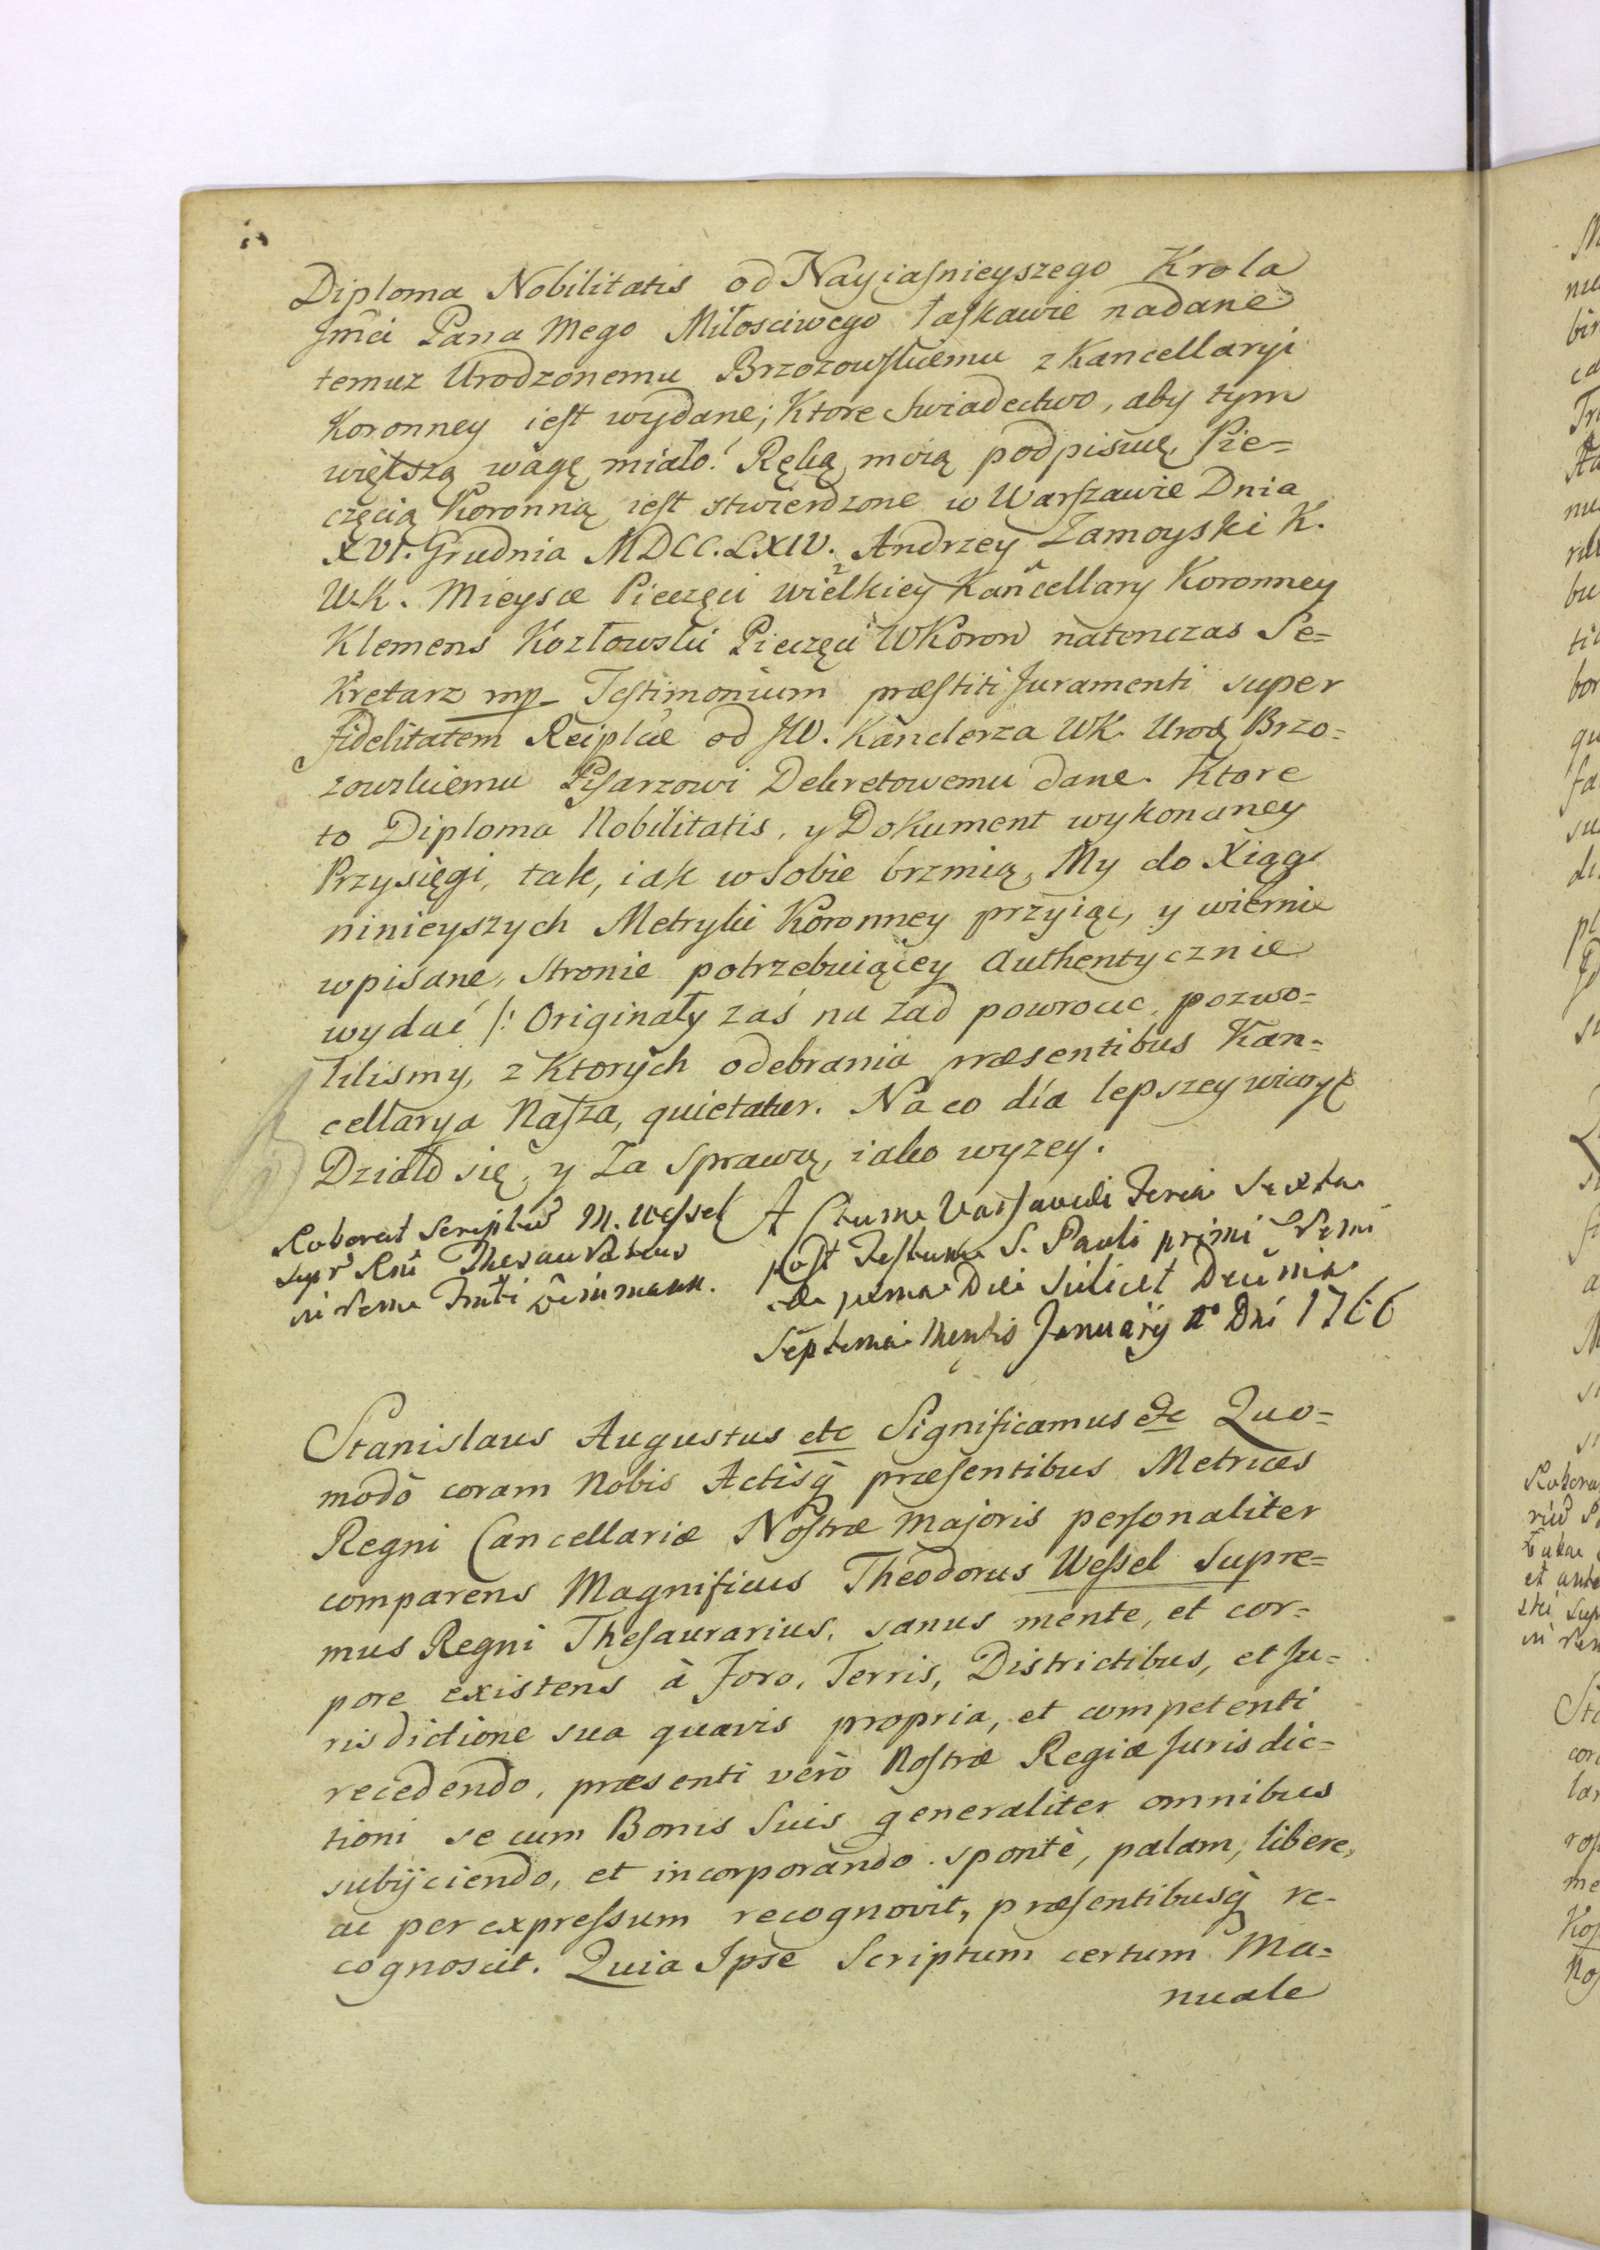 Diploma Nobilitatis od Nayiaśnieyszego Krola
Jmći Pana Mego Miłosciwego łaſkawie nadane
temuz Urodzonemu Brzozowſkiemu z Kancellaryi
Koronney ieſt wydane; Ktore Swiadectwo, aby tym
większą wagę miało! Ręką moią podpisuię, Pie=
częcią Koronną ieſt stwierdzone w Warſzawie Dnia
XVI. Grudnia MDCC.LXIV. Andrzey Zamoyski K.
W.K. Mieysce Pieczęci Wielkiey Kancellary Koronney
Klemens Kozłowski Pieczęci WKoron natenczas Se=
kretarz mp Teſtimonium præſtiti Juramenti super
fidelitatem Reiplcæ od JW. Kanclerza WK. Urod Brzo=
zowskiemu Piſarzowi Dekretowemu dane. Ktore
to Diploma Nobilitatis, y Dokument wykonaney
Przysięgi, tak, iak w sobie brzmią, My do Xiąg
ninieyszych Metryki Koronney przyiąć, y wiernie
wpisane, Stronie potrzebuiącey Authentycznie
wydać /: Originały zaś na zad powrocic, pozwo=
lilismy, z Ktorych odebrania præsentibus Kan=
cellarya Naſza, quietatur. Na co dla lepszey wiary
Działo się, y Za Sprawą, iako wyzey.
Roborat Scriptum M. Weſsel
Supr Rni Thesaurarius
in rem
Actum Varſaviæ Feria Sexta
poſt Feſtum S. Pauli primi
Die Scilicet Decima
Septima Menſis Januarij A° Dni 1766
Stanislaus Augustus etc Significamus etc Quo=
modò coram Nobis Actisq̀ præſentibus Metrices
Regni Cancellariæ Noſtræ Majoris perſonaliter
comparens Magnificus Theodorus Weſsel Supre=
mus Regni Theſaurarius, sanus mente, et cor=
pore existens à Foro, Terris, Districtibus, et Ju=
risdictione sua quavis propria, et competenti
recedendo, præsenti verò Noſtræ Regiæ Jurisdic=
tioni se cum Bonis Suis generaliter omnibus
subijciendo, et incorporando. spontè, palam, libere,
ac per expreſsum recognovit, præſentibusq̀ re=
cognoscit. Quia Ipse Scriptum certum Ma=
nuale